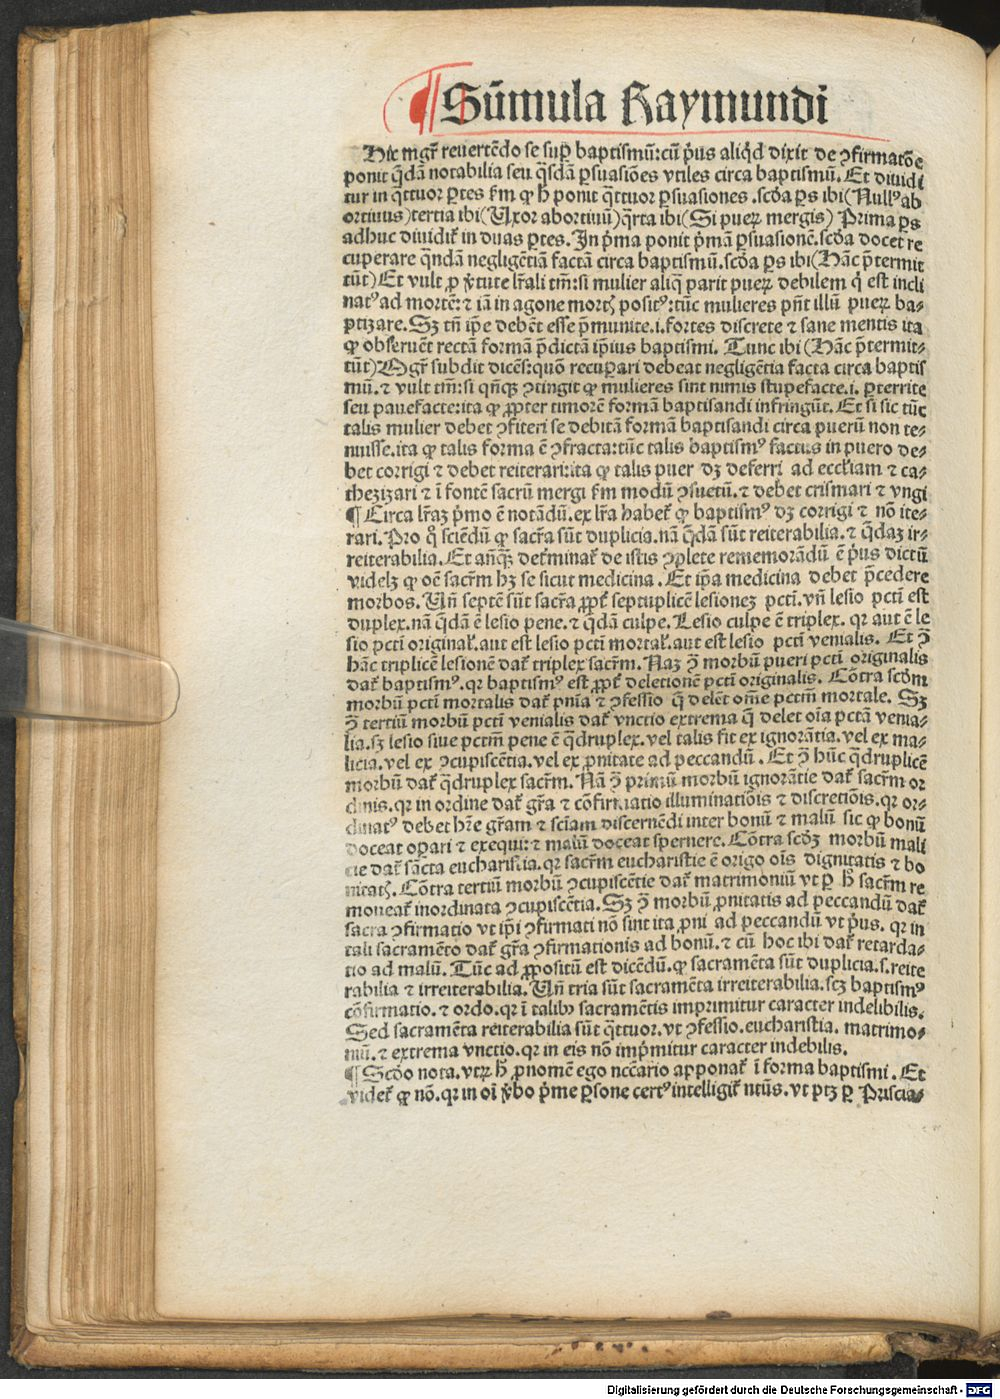 ¶ Sūmula Raymundi
Hic mgr̄ reuertēdo se suꝑ baptismū: cū p̄us aliq̇d dixit de ꝯfirmatōe
ponit q̄dā notabilia seu q̄sdā ꝑsuasiōes vtiles circa baptismū. Et diuidi
tur in q̄ttuor ꝑtes ẜm ꝙ h̄ ponit q̄ttuor ꝑsuasiones .scd̄a ꝑs ibi (Nullꝰ ab
ortiuus) tertia ibi (Uxor abortiuū) q̄rta ibi (Si pueꝝ mergis) Prima ꝑs
adhuc diuidit᷑ in duas ꝑtes. In p̄ma ponit p̄mā ꝑsuasionē. scd̄a docet re
cuperare q̄ndā negligētiā factā circa baptismū. scd̄a ꝑs ibi (Hāc p̄termit
tūt) Et vult ꝓ v̄tute lr̄ali tm̄: si mulier aliq̄ parit pueꝝ debilem q̇ est incli
natꝰ ad mortē: ⁊ iā in agone mortꝭ positꝰ: tūc mulieres pn̄t illū pueꝝ ba-
ptizare. Sꝫ tn̄ ip̄e debēt esse p̄munite .i. fortes discrete ⁊ sane mentis ita
ꝙ obseruēt rectā formā p̄dictā ip̄ius baptismi. Tunc ibi (Hāc p̄termit-
tūt) Mgr̄ subdit dicēs: quō recuꝑari debeat negligētia facta circa baptis
mū. ⁊ vult tm̄: si qn̄qꝫ ꝯtingit ꝙ mulieres sint nimis stupefacte .i. ꝑterrite
seu pauefacte: ita ꝙ ꝓpter timorē formā baptisandi infringūt. Et si sic tūc
talis mulier debet ꝯfiteri se debitā formā baptisandi circa puerū non te-
nuisse. ita ꝙ talis forma ē ꝯfracta: tūc talis baptismꝰ factus in puero de-
bet corrigi ⁊ debet reiterari: ita ꝙ talis puer dꝫ deferri ad eccl̄iam ⁊ ca-
thezizari ⁊ ī fontē sacrū mergi ẜm modū ꝯsuetū. ⁊ debet crismari ⁊ vngi
¶ Circa lr̄aꝫ p̄mo ē notādū. ex lr̄a habet᷑ ꝙ baptismꝰ dꝫ corrigi ⁊ nō ite-
rari. Pro quo sciēdū ꝙ sacr̄a sūt duplicia. nā q̄dā sūt reiterabilia. ⁊ q̄daꝫ ir-
reiterabilia. Et an̄qꝫ determinat᷑ de istis ꝯplete rememorādū ē p̄us dictū
videlꝫ ꝙ oē sacr̄m hꝫ se sicut medicina. Et ip̄a medicina debet p̄cedere
morbos. Un̄ septē sūt sacr̄a ꝓpt᷑ septuplicē lesioneꝫ pctī. vn̄ lesio pctī est
duplex. nā q̄dā ē lesio pene. ⁊ q̄dā culpe. Lesio culpe ē triplex. qr aut ē le
sio pctī original᷑. aut est lesio pctī mortal᷑. aut est lesio pctī venialis. Et ꝯ̄
hāc triplicē lesionē dat᷑ triplex sacr̄m. Naꝫ ꝯ̄ morbū pueri pctī originalis
dat᷑ baptismꝰ. qr baptismꝰ est ꝓpt᷑ deletionē pctī originalis. Cōtra scd̄m
morbū pctī mortalis dat᷑ pn̄ia ⁊ ꝯfessio q̄ delēt om̄e pctm̄ mortale. Sꝫ
ꝯ̄ tertiū morbū pctī venialis dat᷑ vnctio extrema q̄ delet oīa pctā venia-
lia. sꝫ lesio siue pctm̄ pene ē q̄druplex. vel talis fit ex ignorātia. vel ex ma-
licia. vel ex ꝯcupiscētia. vel ex ꝓnitate ad peccandū. Et ꝯ̄ hūc q̄druplicē
morbū dat᷑ q̄druplex sacr̄m. Nā ꝯ̄ primū morbū ignorātie dat᷑ sacr̄m or
dinis. qr in ordine dat᷑ gr̄a ⁊ cōfirmatio illuminatiōis ⁊ discretiōis. qr or-
dinatꝰ debet hr̄e gr̄am ⁊ sciam discernēdi inter bonū ⁊ malū sic ꝙ bonū
doceat oꝑari ⁊ exequi: ⁊ malū doceat spernere. Cōtra scd̄ꝫ morbū mali
cie dat᷑ sācta eucharistia. qr sacr̄m eucharistie ē origo oīs dignitatis ⁊ bo
nitatꝭ. Cōtra tertiū morbū ꝯcupiscētie dat᷑ matrimoniū vt ꝑ h̄ sacr̄m re
moueat᷑ inordinata ꝯcupiscētia. Sꝫ ꝯ̄ morbū ꝓnitatis ad peccandū dat᷑
sacra ꝯfirmatio vt ip̄i ꝯfirmati nō sint ita ꝓni ad peccandū vt p̄us. qr in
tali sacramēto dat᷑ gr̄a ꝯfirmationis ad bonū. ⁊ cū hoc ibi dat᷑ retarda-
tio ad malū. Tūc ad ꝓpositū est dicēdū. ꝙ sacramēta sūt duplicia. s. reite
rabilia ⁊ irreiterabilia. Un̄ tria sūt sacramēta irreiterabilia. scꝫ baptismꝰ
cōfirmatio. ⁊ ordo. qr ī talibꝰ sacramētis imprimitur caracter indelibilis.
Sed sacramēta reiterabilia sūt q̄ttuor. vt ꝯfessio. eucharistia. matrimo-
niū. ⁊ extrema vnctio. qr in eis nō imp̄mitur caracter indebilis.
¶ Scd̄o nota. vtꝝ h̄ ꝓnomē ego nccārio apponat᷑ ī forma baptismi. Et
videt᷑ ꝙ nō. qr in oī v̄bo p̄me ꝑsone certꝰ intelligit᷑ ntūs. vt ptꝫ ꝑ Priscia-
Digitalisierung gefördert durch die Deutsche Forschungsgemeinschaft - DFG